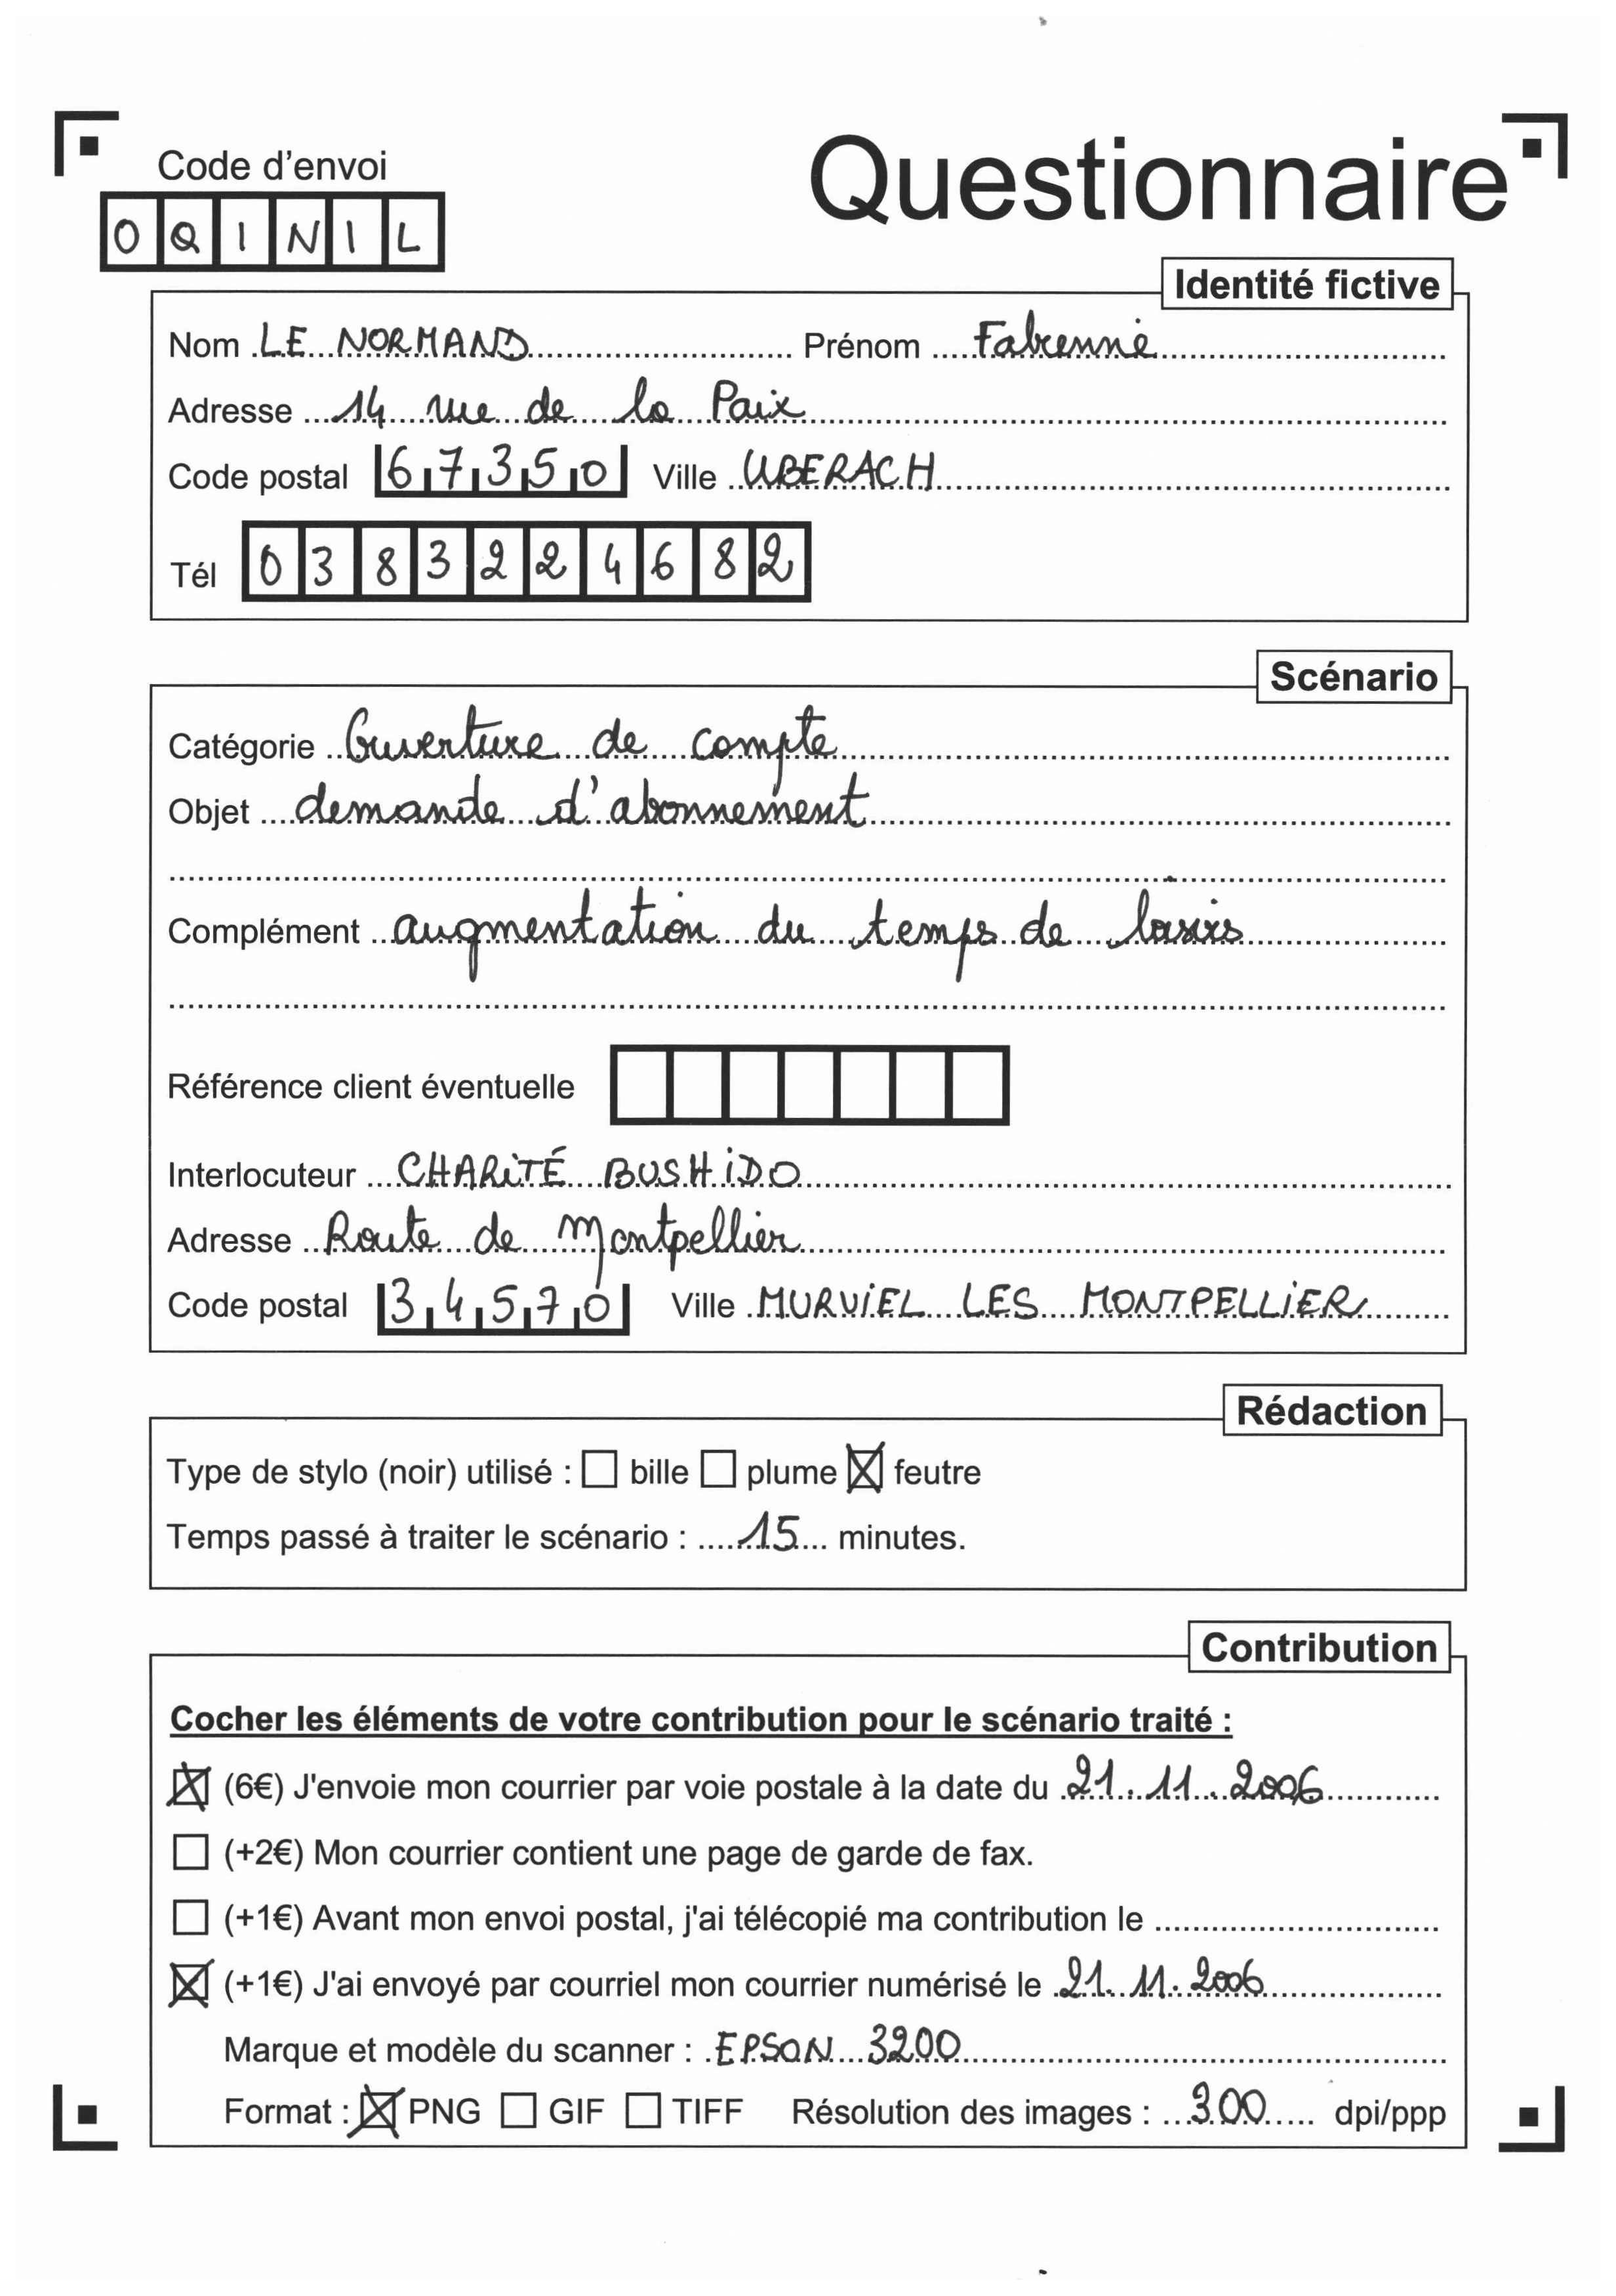 Code d'envoi
Questionnaire
OQINIL
Identité fictive
Nom LE NORMAND Prénom Fabienne
Adresse 14 rue de la Paix
Code postal 67350 Ville UBERACH
Tél 0383224682
Scénario
Catégorie Ouverture de compte
Objet demande d'abonnement
Complément augmentation du temps de loisirs
Référence client éventuelle
Interlocuteur CHARITÉ BUSHIDO
Adresse Route de Montpellier
Code postal 34570 Ville MURVIEL LES MONTPELLIER
Rédaction
Type de stylo (noir) utilisé : ☐ bille ☐ plume ☒ feutre
Temps passé à traiter le scénario : 15 minutes.
Contribution
Cocher les éléments de votre contribution pour le scénario traité :
☒ (6€) J'envoie mon courrier par voie postale à la date du 21.11.2006
☐ (+2€) Mon courrier contient une page de garde de fax.
☐ (+1€) Avant mon envoi postal, j'ai télécopié ma contribution le
☒ (+1€) J'ai envoyé par courriel mon courrier numérisé le 21.11.2006
Marque et modèle du scanner : EPSON 3200
Format : ☒ PNG ☐ GIF ☐ TIFF Résolution des images : 300 dpi/ppp